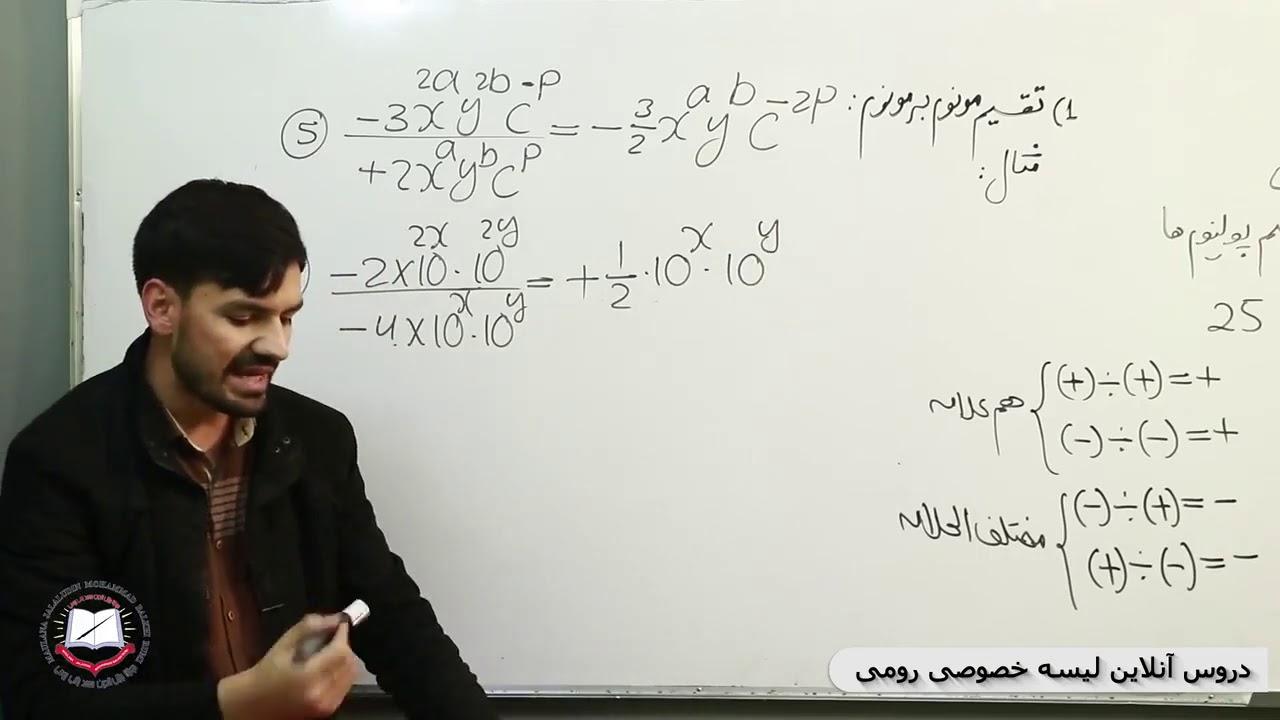 1) تقسیم مونوم بر مونوم:
مثال:
⑤ (-3x^{2a} y^{2b} c^{-p}) / (+2x^a y^b c^p) = -3/2 x^a y^b c^{-2p}
(-2×10^{2x} · 10^{2y}) / (-4×10^x · 10^y) = +1/2 · 10^x · 10^y
پولینوم ها
25
هم علامه
(+)÷(+)=+
(-)÷(-)=+
مختلف العلامه
(-)÷(+)=-
(+)÷(-)=-
MAULANA JALALUDDIN MOHAMMAD BALKHI RUMI
دروس آنلاین لیسه خصوصی رومی